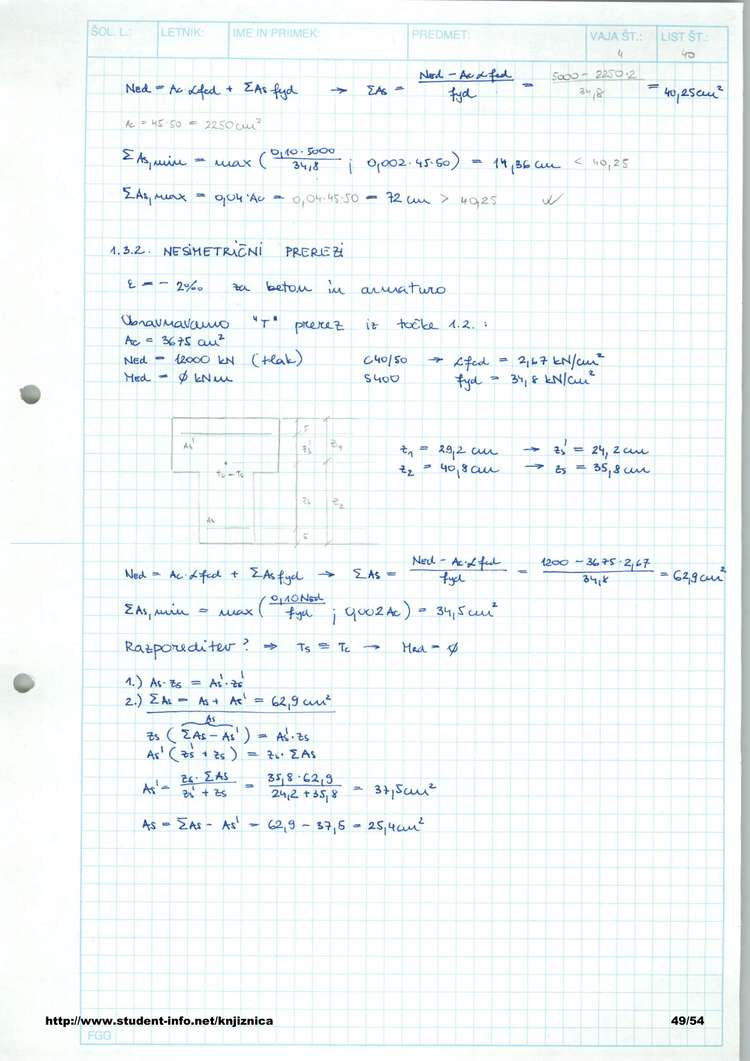 ŠOL. L.: LETNIK: IME IN PRIIMEK: PREDMET: VAJA ŠT.: LIST ŠT.:
4 40
Ned = Ac αfcd + ΣAs fyd → ΣAs = (Ned - Ac αfcd)/fyd = (5000 - 2250·2)/34,8 = 40,25 cm²
Ac = 45·50 = 2250 cm²
ΣAs,min = max (0,10·5000/34,8 ; 0,002·45·50) = 14,36 cm < 40,25
ΣAs,max = 0,04·Ac = 0,04·45·50 = 72 cm > 40,25 ✓
1.3.2. NESIMETRIČNI PREREZI
ε = - 2‰ za beton in armaturo
Obravnavamo "T" prerez iz točke 1.2. :
Ac = 3675 cm²
Ned = 12000 kN (tlak) C40/50 → αfcd = 2,67 kN/cm²
Med = ∅ kNm S400 fyd = 34,8 kN/cm²
As' 5 zs' z1
Tc = Ts
As zs z2 5
z1 = 29,2 cm → zs' = 24,2 cm
z2 = 40,8 cm → zs = 35,8 cm
Ned = Ac·αfcd + ΣAs fyd → ΣAs = (Ned - Ac·αfcd)/fyd = (1200 - 3675·2,67)/34,8 = 62,9 cm²
ΣAs,min = max (0,10Ned/fyd ; 0,002Ac) = 34,5 cm²
Razporeditev? ⇒ Ts ≡ Tc → Med = ∅
1.) As·zs = As'·zs'
2.) ΣAs = As + As' = 62,9 cm²
As
zs (ΣAs - As') = As'·zs
As' (zs' + zs) = zs·ΣAs
As' = zs·ΣAs/(zs' + zs) = 35,8·62,9/(24,2 + 35,8) = 37,5 cm²
As = ΣAs - As' = 62,9 - 37,5 = 25,4 cm²
http://www.student-info.net/knjiznica 49/54
FGG